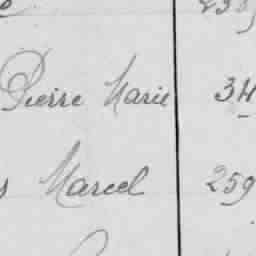 Pierre Marie 34
Marcel 259